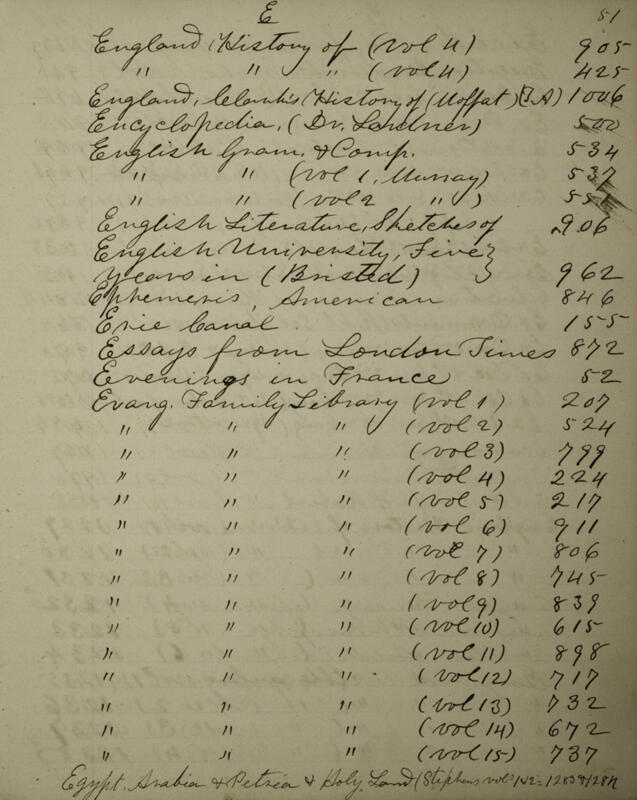 E 51
England, History of (vol 4) 905
" " " (vol 4) 425
England, Clark's History of (Moffat) 1006
Encyclopedia, (Dr. Lardner) 500
English Gram. & Comp. 534
" " (vol 1, Murray) 537
" " (vol 2 ")
English Literature, Sketches of 906
English University, Five }
years in (Bristed) } 962
Ephemeris, American 846
Erie Canal 155
Essays from London Times 872
Evenings in France 52
Evang. Family Library (vol 1) 207
" " " (vol 2) 524
" " " (vol 3) 799
" " " (vol 4) 224
" " " (vol 5) 217
" " " (vol 6) 911
" " " (vol 7) 806
" " " (vol 8) 745
" " " (vol 9) 839
" " " (vol 10) 615
" " " (vol 11) 898
" " " (vol 12) 717
" " " (vol 13) 732
" " " (vol 14) 672
" " " (vol 15) 737
Egypt, Arabia & Petrea & Holy Land (Stephens vols 1 & 2 = 1283 &